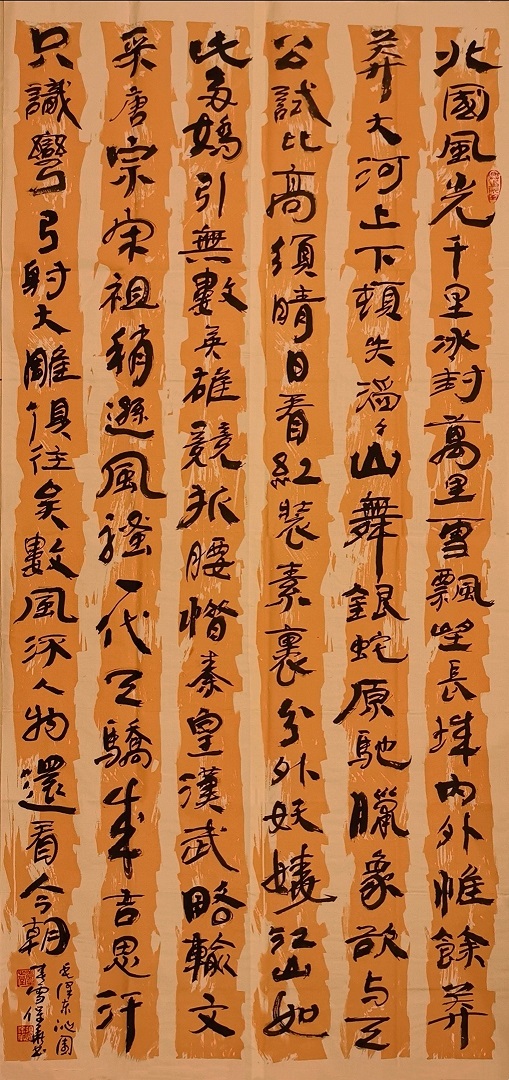 北國風光千里冰封萬里雪飄望長城内外惟餘莽
莽大河上下頓失滔々山舞銀蛇原馳臘象欲与天
公試比高須晴日看紅裝素裹分外妖嬈江山如
此多嬌引無數英雄競折腰惜秦皇漢武略輸文
采唐宗宋祖稍遜風騷一代天驕成吉思汗
只識彎弓射大雕俱往矣數風流人物還看今朝
毛澤東沁園
春雪